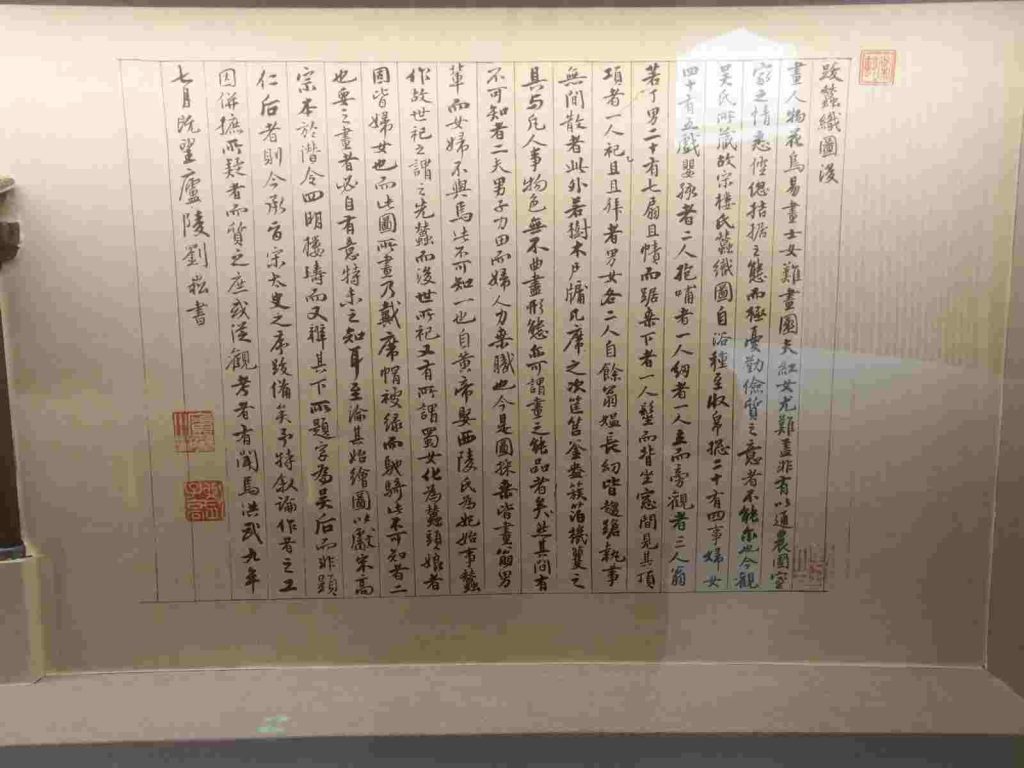 跋蠶織圖後
畫人物花鳥易畫士女難畫園夫紅女尤難蓋非有以通農圃室
家之情悉倥傯拮据之態而極憂勤儉質之意者不能爾也今觀
吳氏所藏故宗樓氏蠶織圖自浴種至收帛摠二十有四事婦女
四十有五戲嬰孩者二人抱哺者一人幼者一人立而旁觀者三人翁
若丁男二十有七扇且幘而踞桑下者一人髽而背坐窓間見其頂
項者一人祀且且拜者男女各二人自餘翁媼長幼皆趨蹌執事
無閒散者此外若樹木戶牖几席之次筐筥釜甑簇箔機籰之
具与凡人事物色無不曲盡形態亦可謂畫之能品者矣然其間有
不可知者二夫男子力田而婦人力桑職也今是圖採桑皆畫筋男
輩而女婦不與焉此不可知一也自黃帝娶西陵氏為妃始事蠶
作故世祀之謂之先蠶而後世所祀又有所謂蜀女化為蠶頭娘者
固皆婦女也而此圖所畫乃戴席帽襈緣而馳騎此不可知者二
也要之畫者必自有意特未之知耳至論其始繪圖以獻宋高
宗本於潛令四明樓璹而又辯其下所題字為吳后而非顯
仁后者則今承旨宋太史之序跋備矣予特叙論作者之工
因併摭所疑者而質之庶或從觀考者有聞焉洪武九年
七月既望廬陵劉崧書